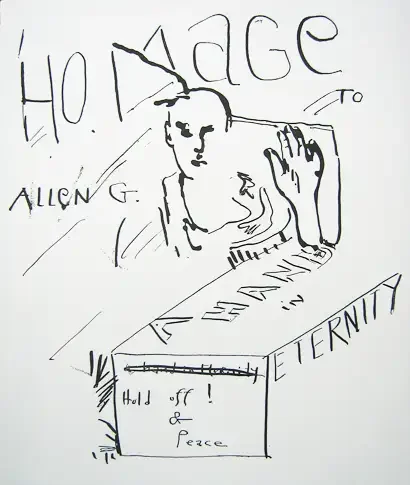 HOMAGE
TO
ALLEN G.
A HAND
in
ETERNITY
Hold off !
&
Peace